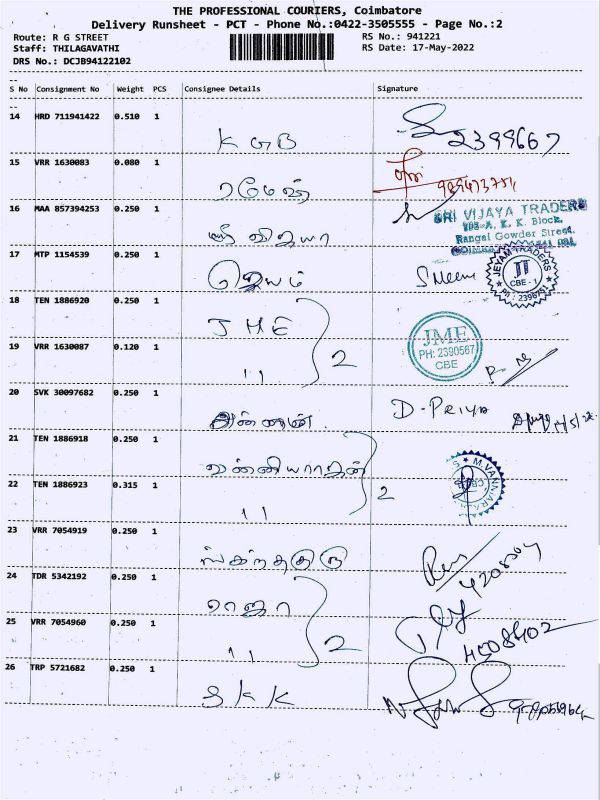 THE PROFESSIONAL COURIERS, Coimbatore
Delivery Runsheet - PCT - Phone No.:0422-3505555 - Page No.:2
Route: R G STREET RS No.: 941221
Staff: THILAGAVATHI RS Date: 17-May-2022
DRS No.: DCJB94122102
S No Consignment No Weight PCS Consignee Details Signature
14 HRD 711941422 0.510 1 KGB 2399667
15 VRR 1630083 0.080 1 ரமேஷ்
16 MAA 857394253 0.250 1 ஸ்ரீ விஜயா SRI VIJAYA TRADERS
103-A, K. K. Block,
Rangai Gowder Street,
17 MTP 1154539 0.250 1 ஜெயம் JEYAM TRADERS JT CBE - 1
18 TEN 1886920 0.250 1 JME JME
PH: 2390567
CBE
19 VRR 1630087 0.120 1 ,, 2
20 SVK 30097682 0.250 1 D-Priya
21 TEN 1886918 0.250 1 வன்னியராஜன்
22 TEN 1886923 0.315 1 ,, 2
23 VRR 7054919 0.250 1 ஸ்கந்தகுரு
24 TDR 5342192 0.250 1 ராஜா
25 VRR 7054960 0.250 1 ,, 2
26 TRP 5721682 0.250 1 SKK